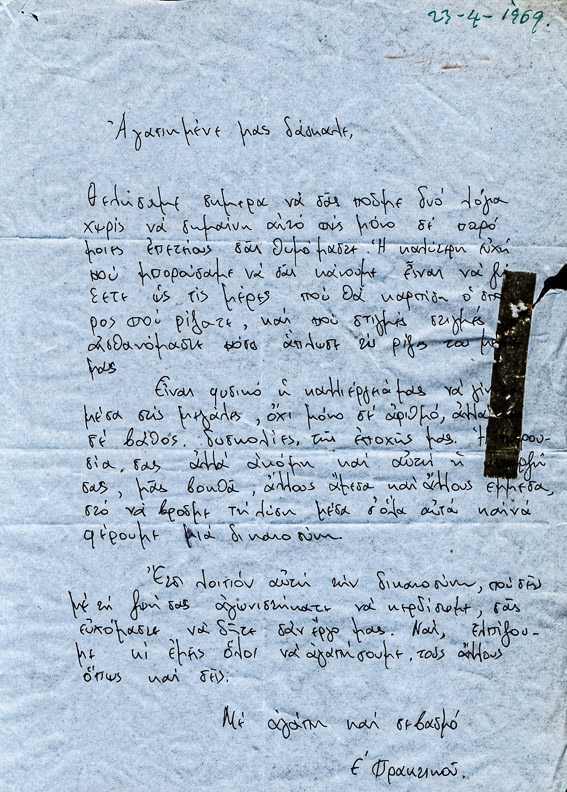 23-4-1969.
Ἀγαπημένε μας δάσκαλε,
Θελήσαμε σήμερα νὰ σᾶς ποῦμε δυό λόγια
χωρὶς νὰ σημαίνη αὐτό πώς μόνο σέ παρό
μοιες ἐπετείους σᾶς θυμόμαστε. Ἡ καλύτερη εὐχή
πού μπορούσαμε νὰ σᾶς κάνουμε εἶναι νὰ ζή
σετε ὡς τὶς μέρες πού θὰ καρπίση ὁ σπο
ρος πού ρίξατε, καὶ πού στιγμές στιγμές
αἰσθανόμαστε πόσο ἅπλωσε τὶς ρίζες του μέσα
μας
Εἶναι φυσικό ἡ καλλιέργειά μας νὰ γίν
μέσα στὶς μεγάλες, ὄχι μόνο σέ ἀριθμό, ἀλλὰ
σέ βάθος. δυσκολίες, τῆς ἐποχῆς μας. Ἡ παρου-
σία σας ἀλλά ἀκόμη καὶ αὐτή ἡ
σας, μᾶς βοηθᾶ, ἄλλους ἄμεσα καὶ ἄλλους ἔμμεσα,
στό νὰ βροῦμε τή λύση μέσα σ'ὅλα αὐτά καὶ νά
φέρουμε μιὰ δικαιοσύνη.
Ἔτσι λοιπόν αὐτή τὴν δικαιοσύνη, πού σεῖς
μέ τή ζωή σας ἀγωνιστήκατε νὰ κερδίσουμε, σᾶς
εὐχόμαστε νὰ δῆτε σὰν ἔργο μας. Ναί, ἐλπίζου-
με κι ἐμεῖς ὅλοι νὰ ἀγαπήσουμε τούς ἄλλους
ὅπως καὶ σεῖς.
Μέ ἀγάπη καὶ σεβασμό
Ε' Πρακτικοῦ.